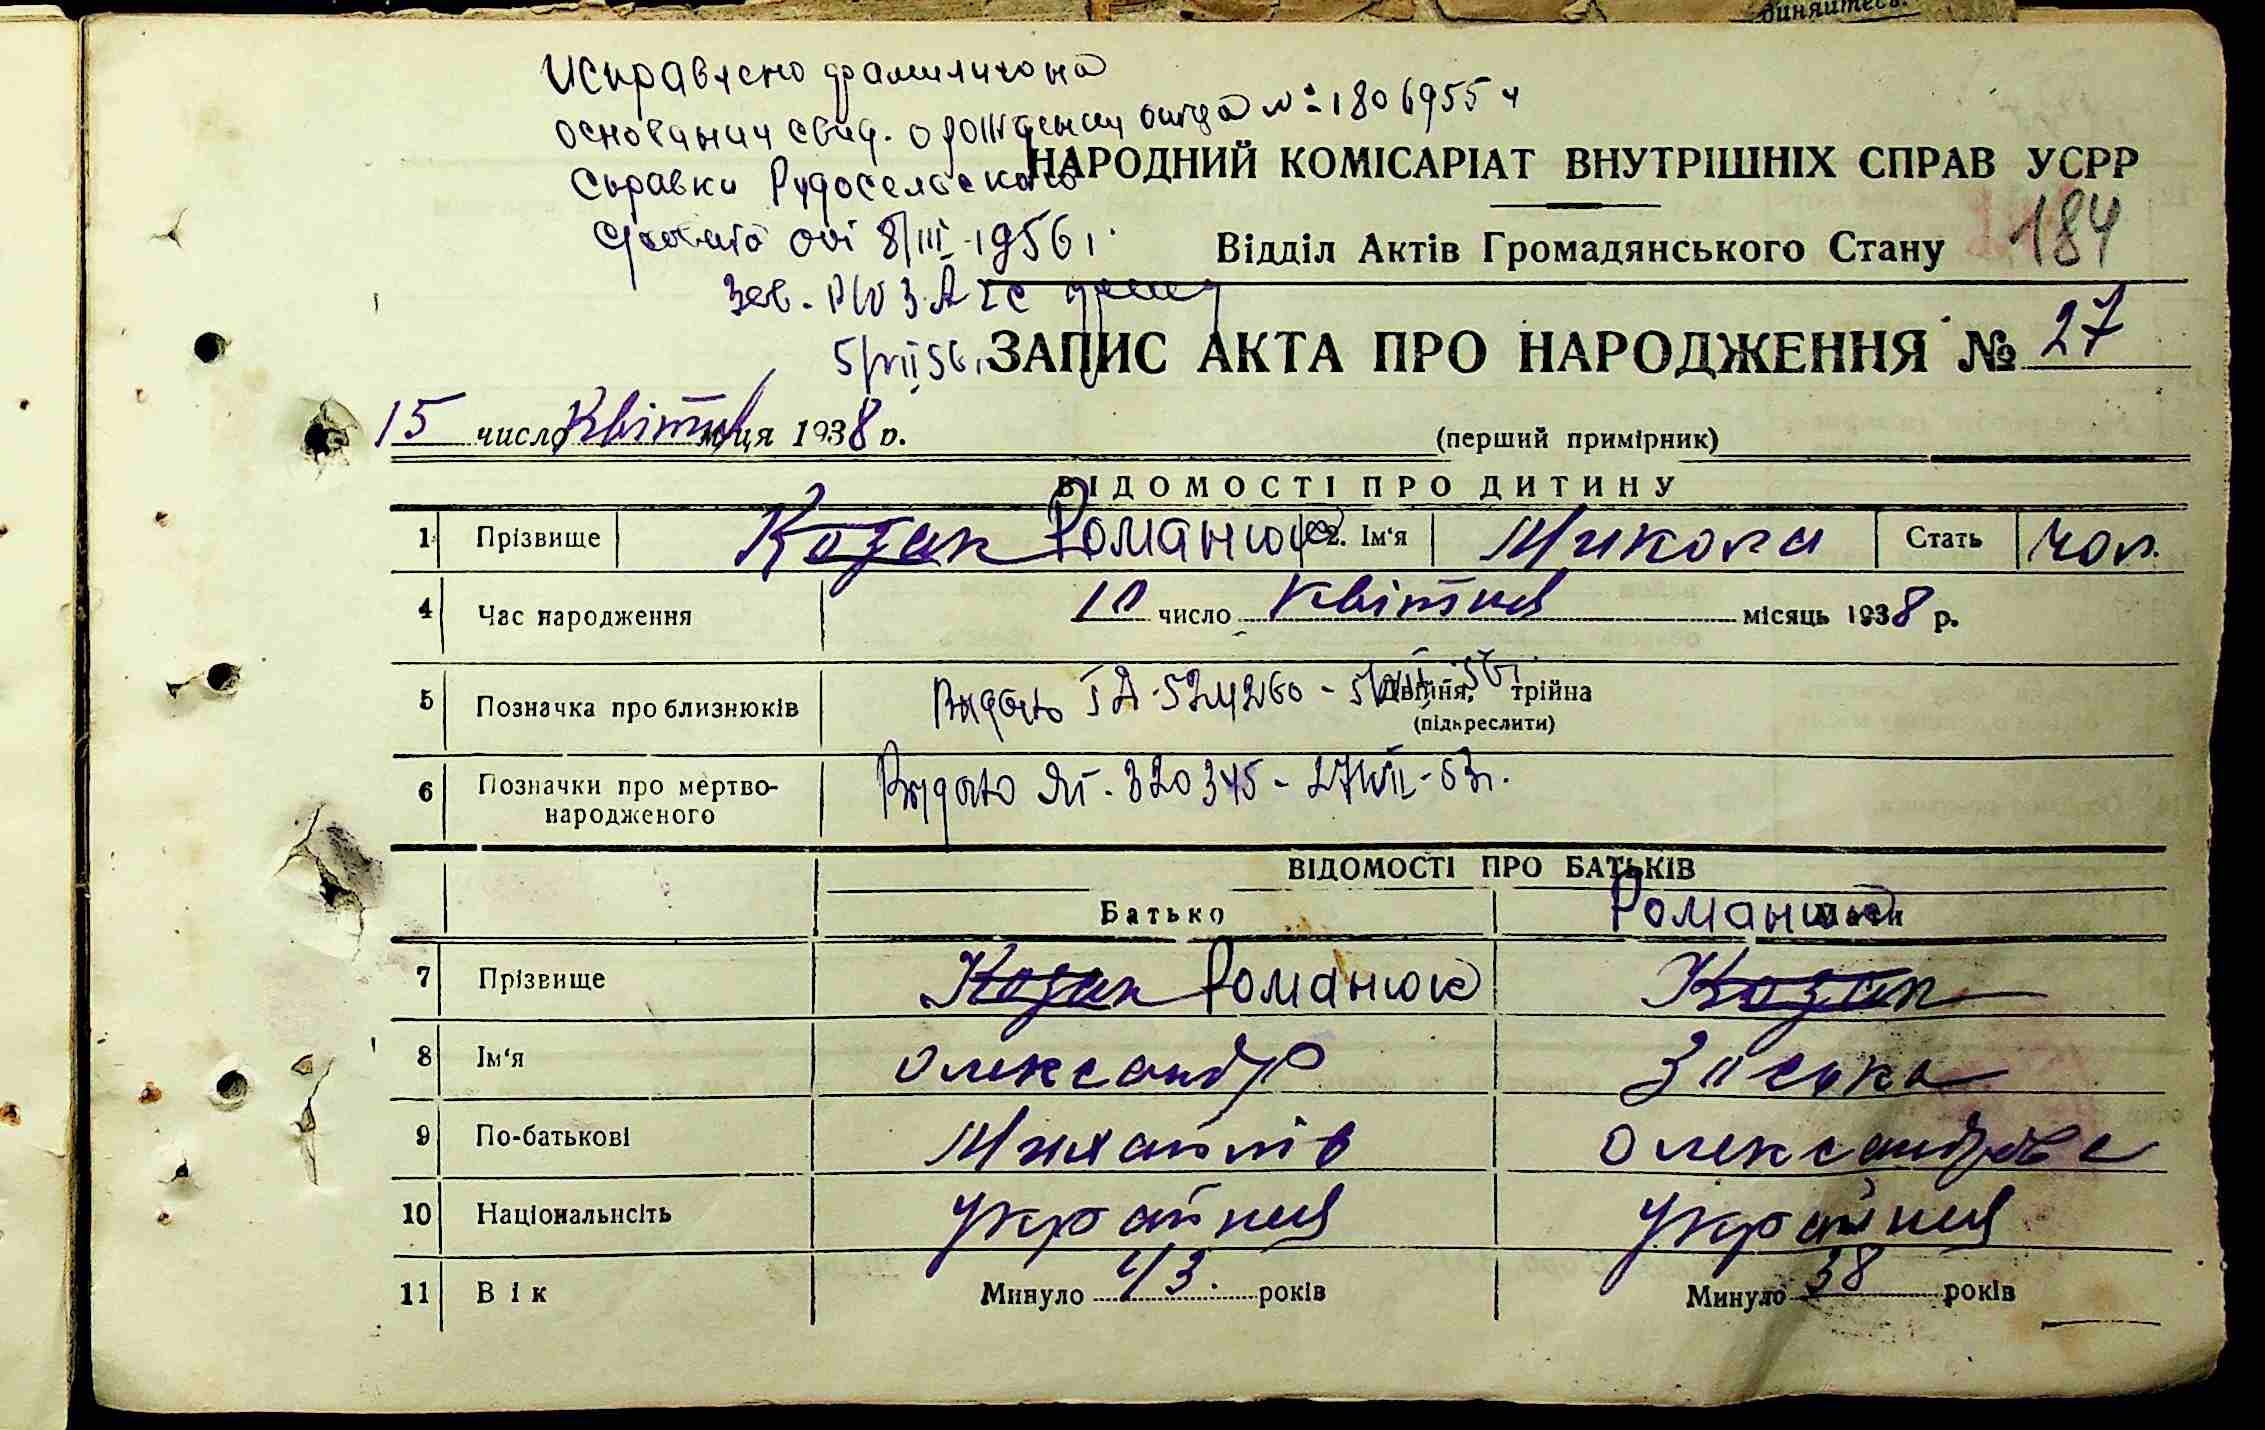 диняйтесь.
Исправлено фамилию на
основании свид. о рождении отца № 1806955 и
справки Рудосельского
с/совета от 8/III-1956 г.
Зав. РЮ ЗАГС
5/VII 56 г.
НАРОДНИЙ КОМІСАРІАТ ВНУТРІШНІХ СПРАВ УСРР
184
Відділ Актів Громадянського Стану
ЗАПИС АКТА ПРО НАРОДЖЕННЯ № 27
15 число Квітня м-ця 1938 р.
(перший примірник)
ВІДОМОСТІ ПРО ДИТИНУ
1 Прізвище Козак Романюк 2. Ім'я Микола Стать чол.
4 Час народження 10 число Квітня місяць 1938 р.
5 Позначка про близнюків Двійня, трійна
(підкреслити)
Видано 5/VII 56 г.
6 Позначки про мертво-
народженого
Видано ЯГ-320345-27/VII-63 г.
ВІДОМОСТІ ПРО БАТЬКІВ
Батько Мати
Романюк
7 Прізвище Козак Романюк Козак
8 Ім'я Олександр Зіська
9 По-батькові Михайлів Олександрівна
10 Національність Україниця Україниця
11 Вік Минуло 43 років Минуло 38 років